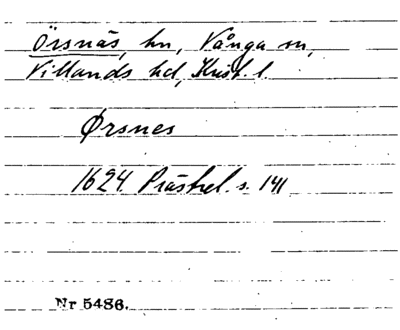 Örsnäs, hn, Vånga sn,
Villands hd, Krist. l.
Ørsnes
1624 Prästrel. s. 141
Nr 5486.